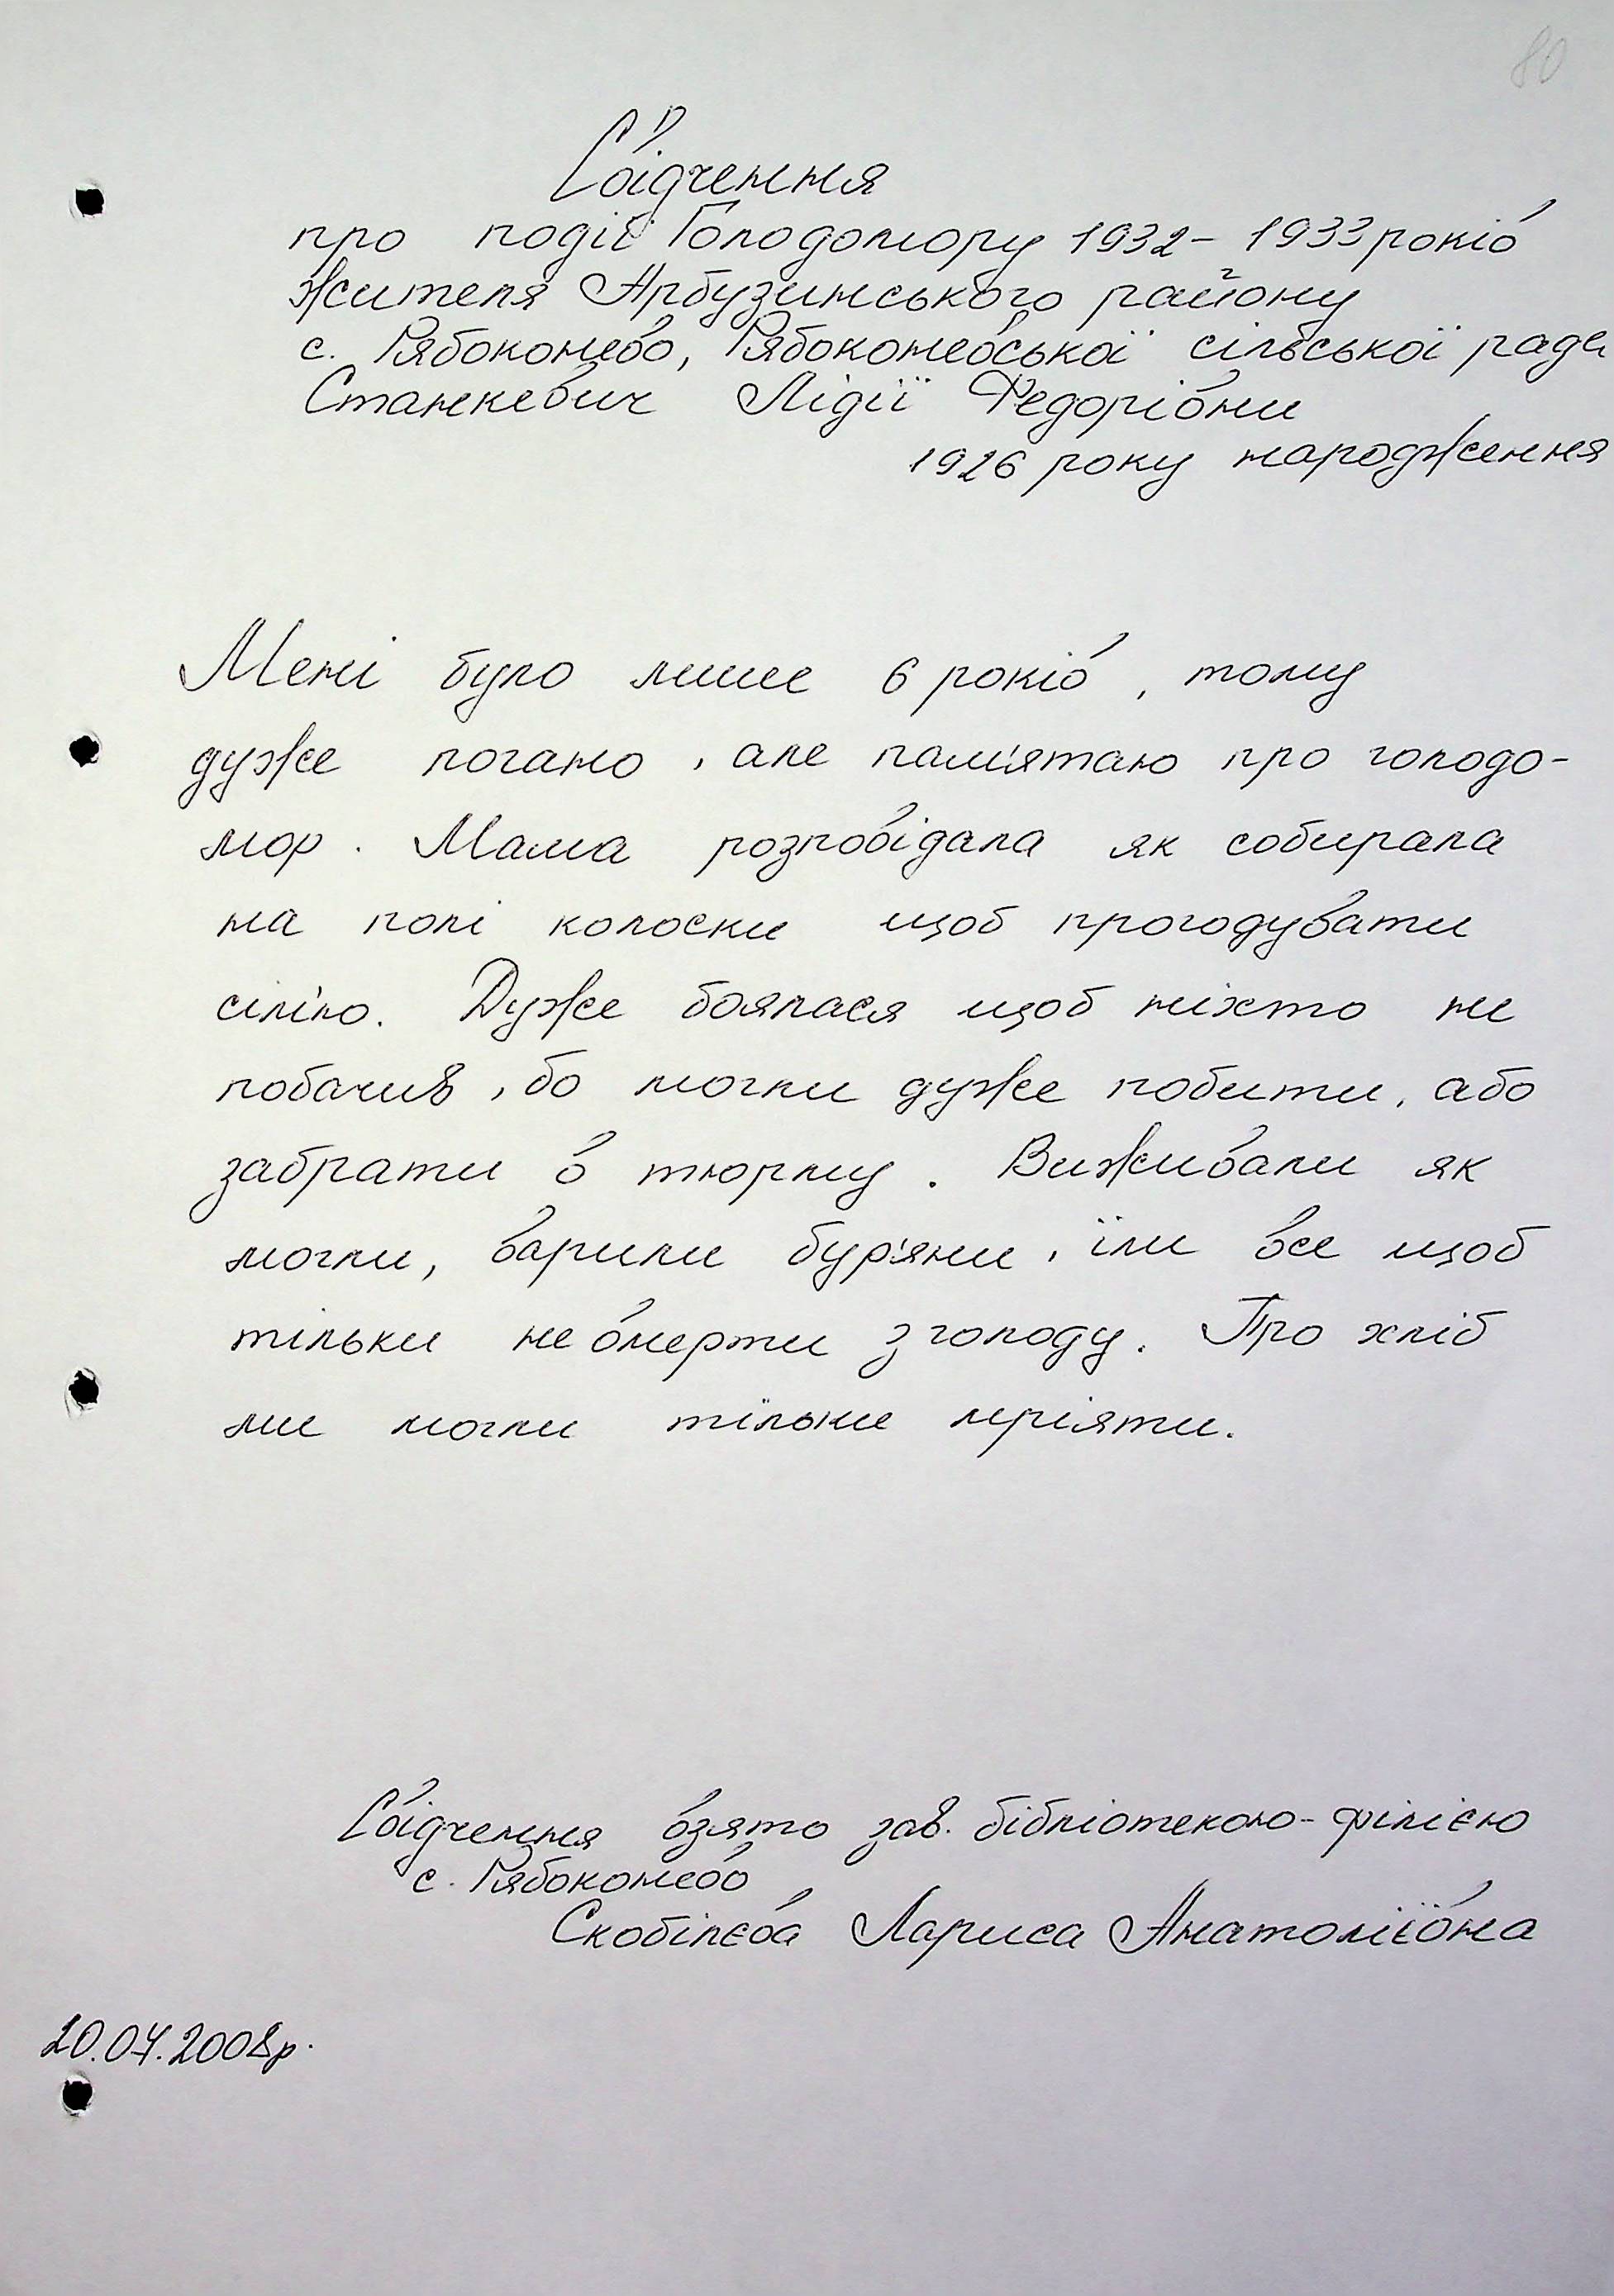 80
Свідчення
про події Голодомору 1932 - 1933 років
жителя Арбузинського району
с. Рябоконево, Рябоконевської сільської ради
Станкевич Лідії Федорівни
1926 року народження
Мені було лише 6 років, тому
дуже погано, але пам'ятаю про голодо-
мор. Мама розповідала як собирала
на полі колоски щоб прогодувати
сім'ю. Дуже боялася щоб ніхто не
побачив, бо могли дуже побити, або
забрати в тюрму. Виживали як
могли, варили бур'яни, їли все щоб
тільки не вмерти з голоду. Про хліб
ми могли тільки мріяти.
Свідчення взято зав. бібліотекою-філією
с. Рябоконево
Скобілєва Лариса Анатоліївна
20.04.2008р.